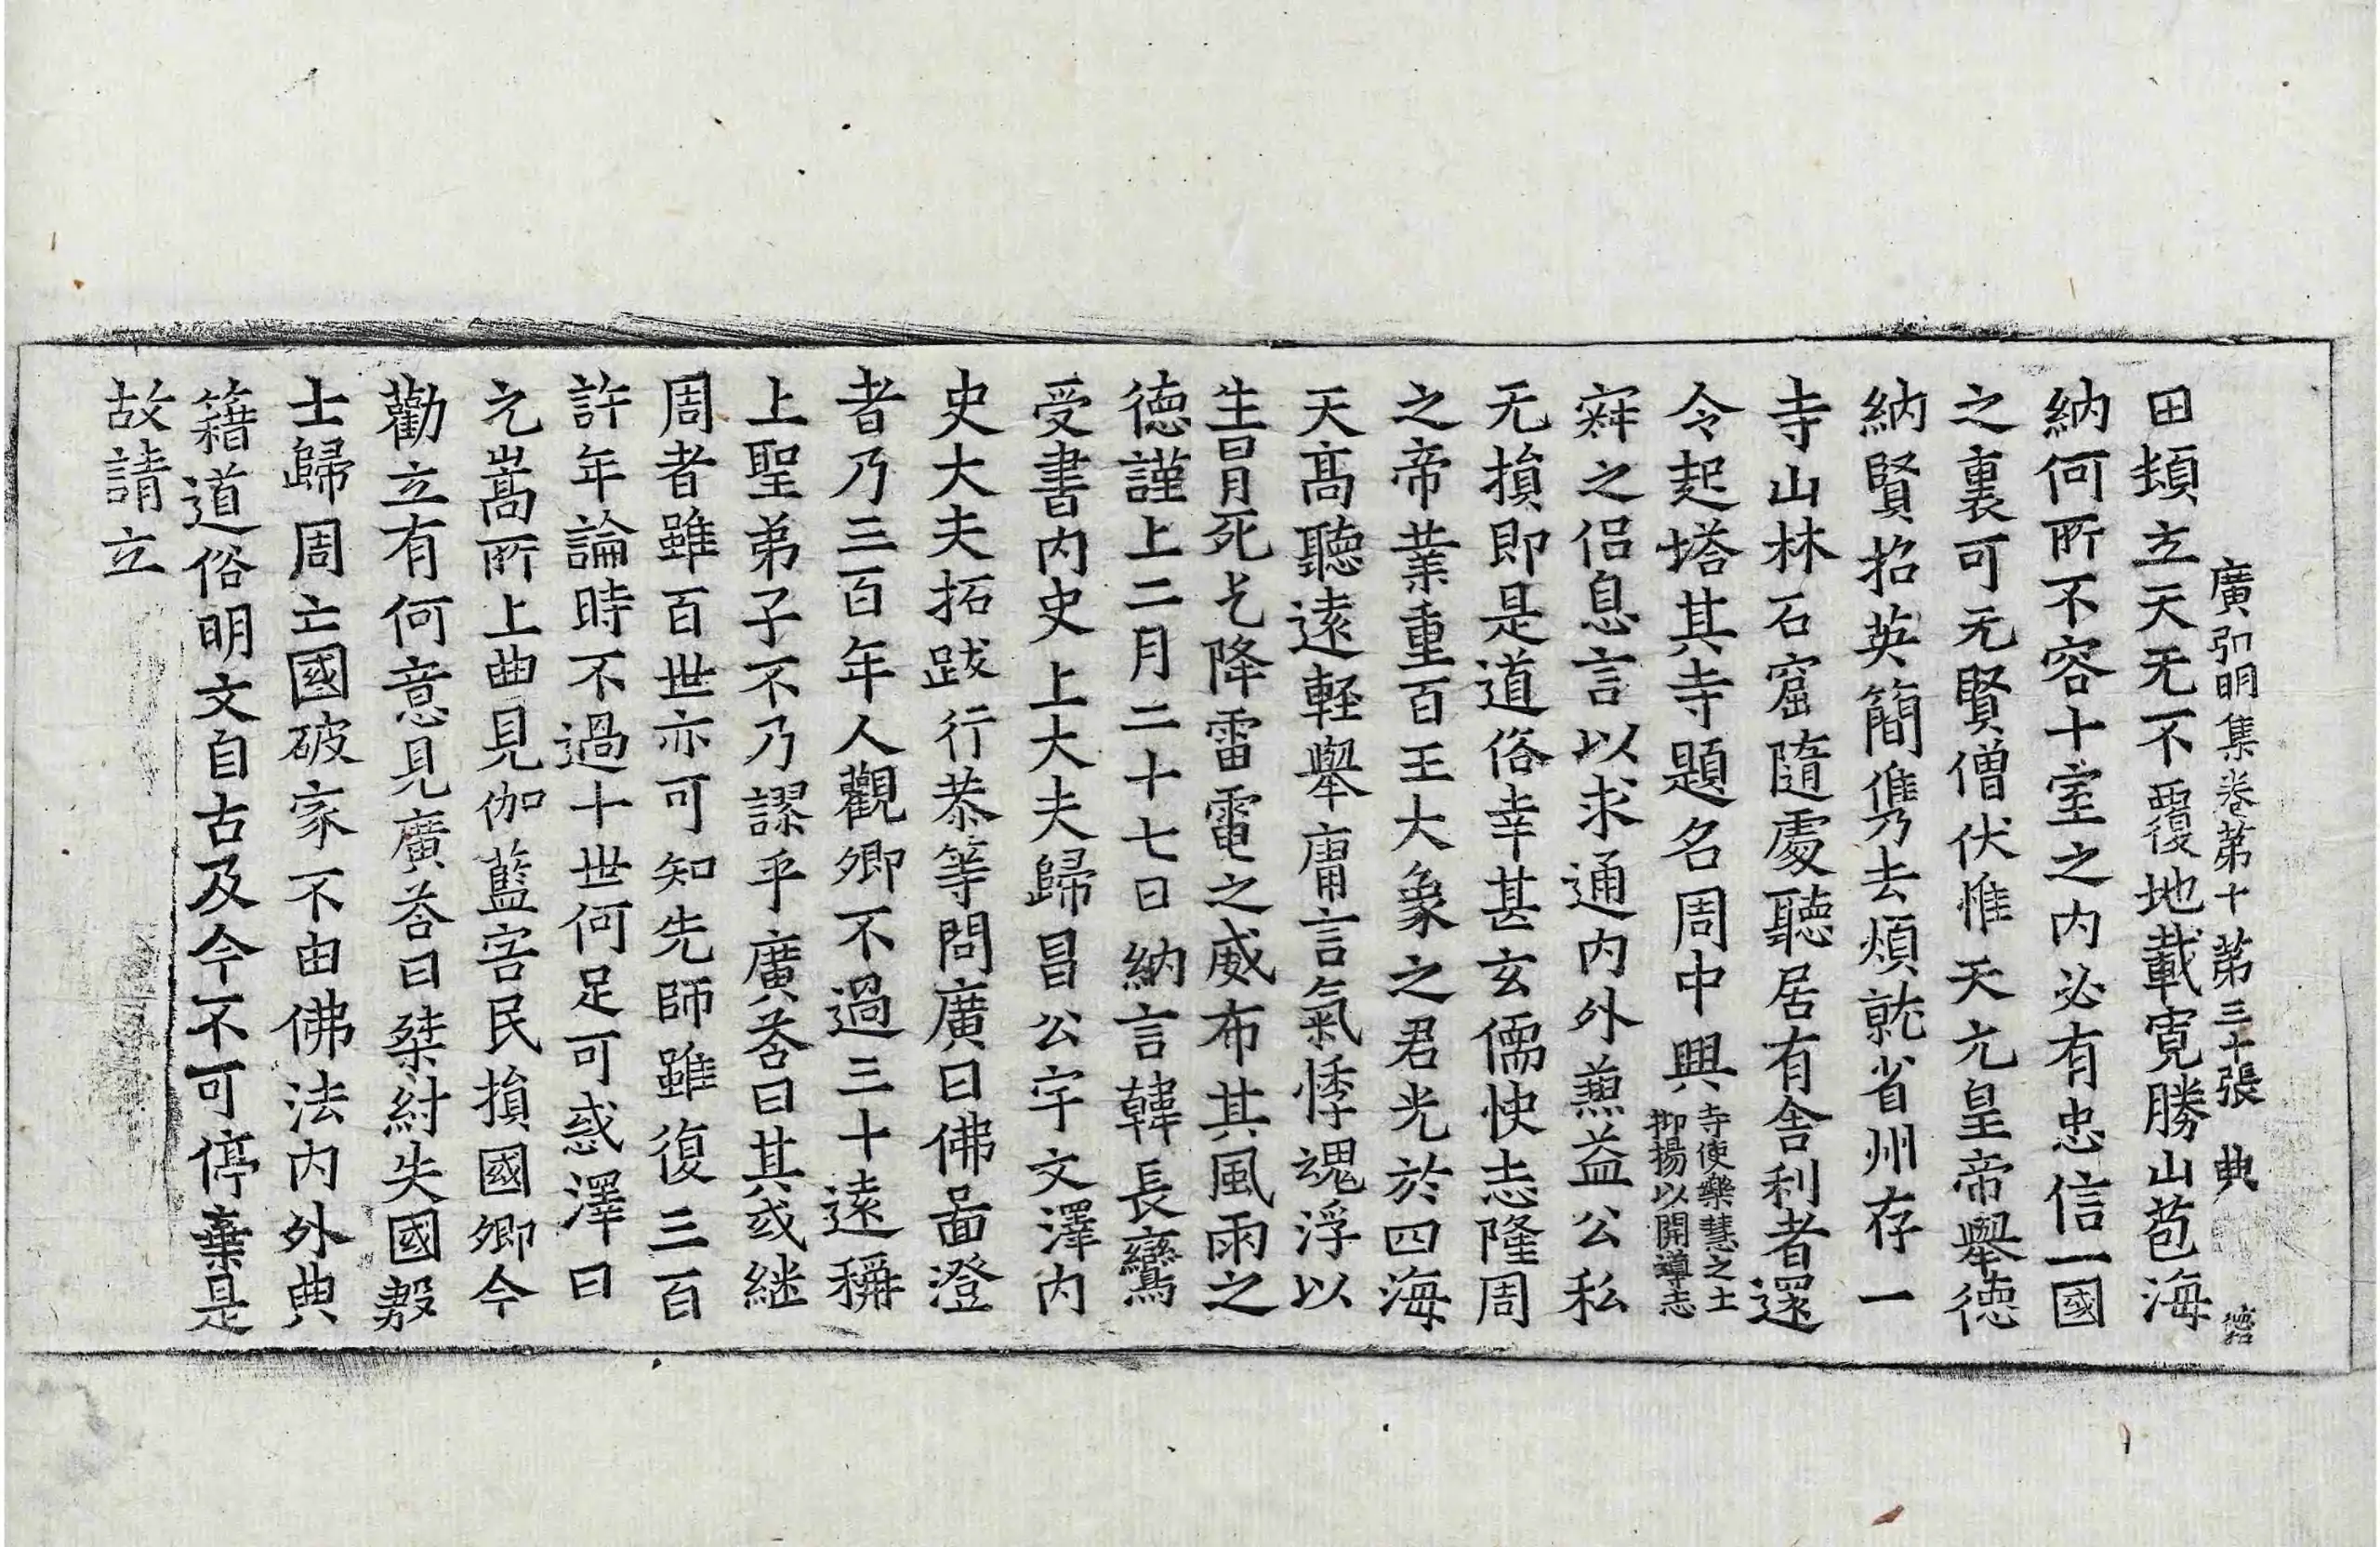 廣弘明集卷第十 第三十張 典
田頃立天无不覆地載寛勝山苞海
納何所不容十室之内必有忠信一國
之裏可无賢僧伏惟天元皇帝舉德
納賢招英簡儁去煩就省州存一
寺山林石窟隨處聽居有舍利者還
令起塔其寺題名周中興寺使樂慧之士
抑揚以開導志
寐之侶息言以求通内外兼益公私
无損即是道俗幸甚玄儒快志隆周
之帝業重百王大象之君光於四海
天髙聽遠輕舉庸言氣悸魂浮以
生冒死乞降雷電之威布其風雨之
德謹上二月二十七日納言韓長鸞
受書内史上大夫歸昌公宇文澤内
史大夫拓跋行恭等問廣曰佛啚澄
者乃三百年人觀卿不過三十遠稱
上聖弟子不乃謬乎廣荅曰其或継
周者雖百世亦可知先師雖復三百
許年論時不過十世何足可惑澤曰
元嵩所上曲見伽藍害民損國卿今
勸立有何意見廣荅曰桀紂失國㪅
士歸周亡國破家不由佛法内外典
籍道俗明文自古及今不可停棄是
故請立